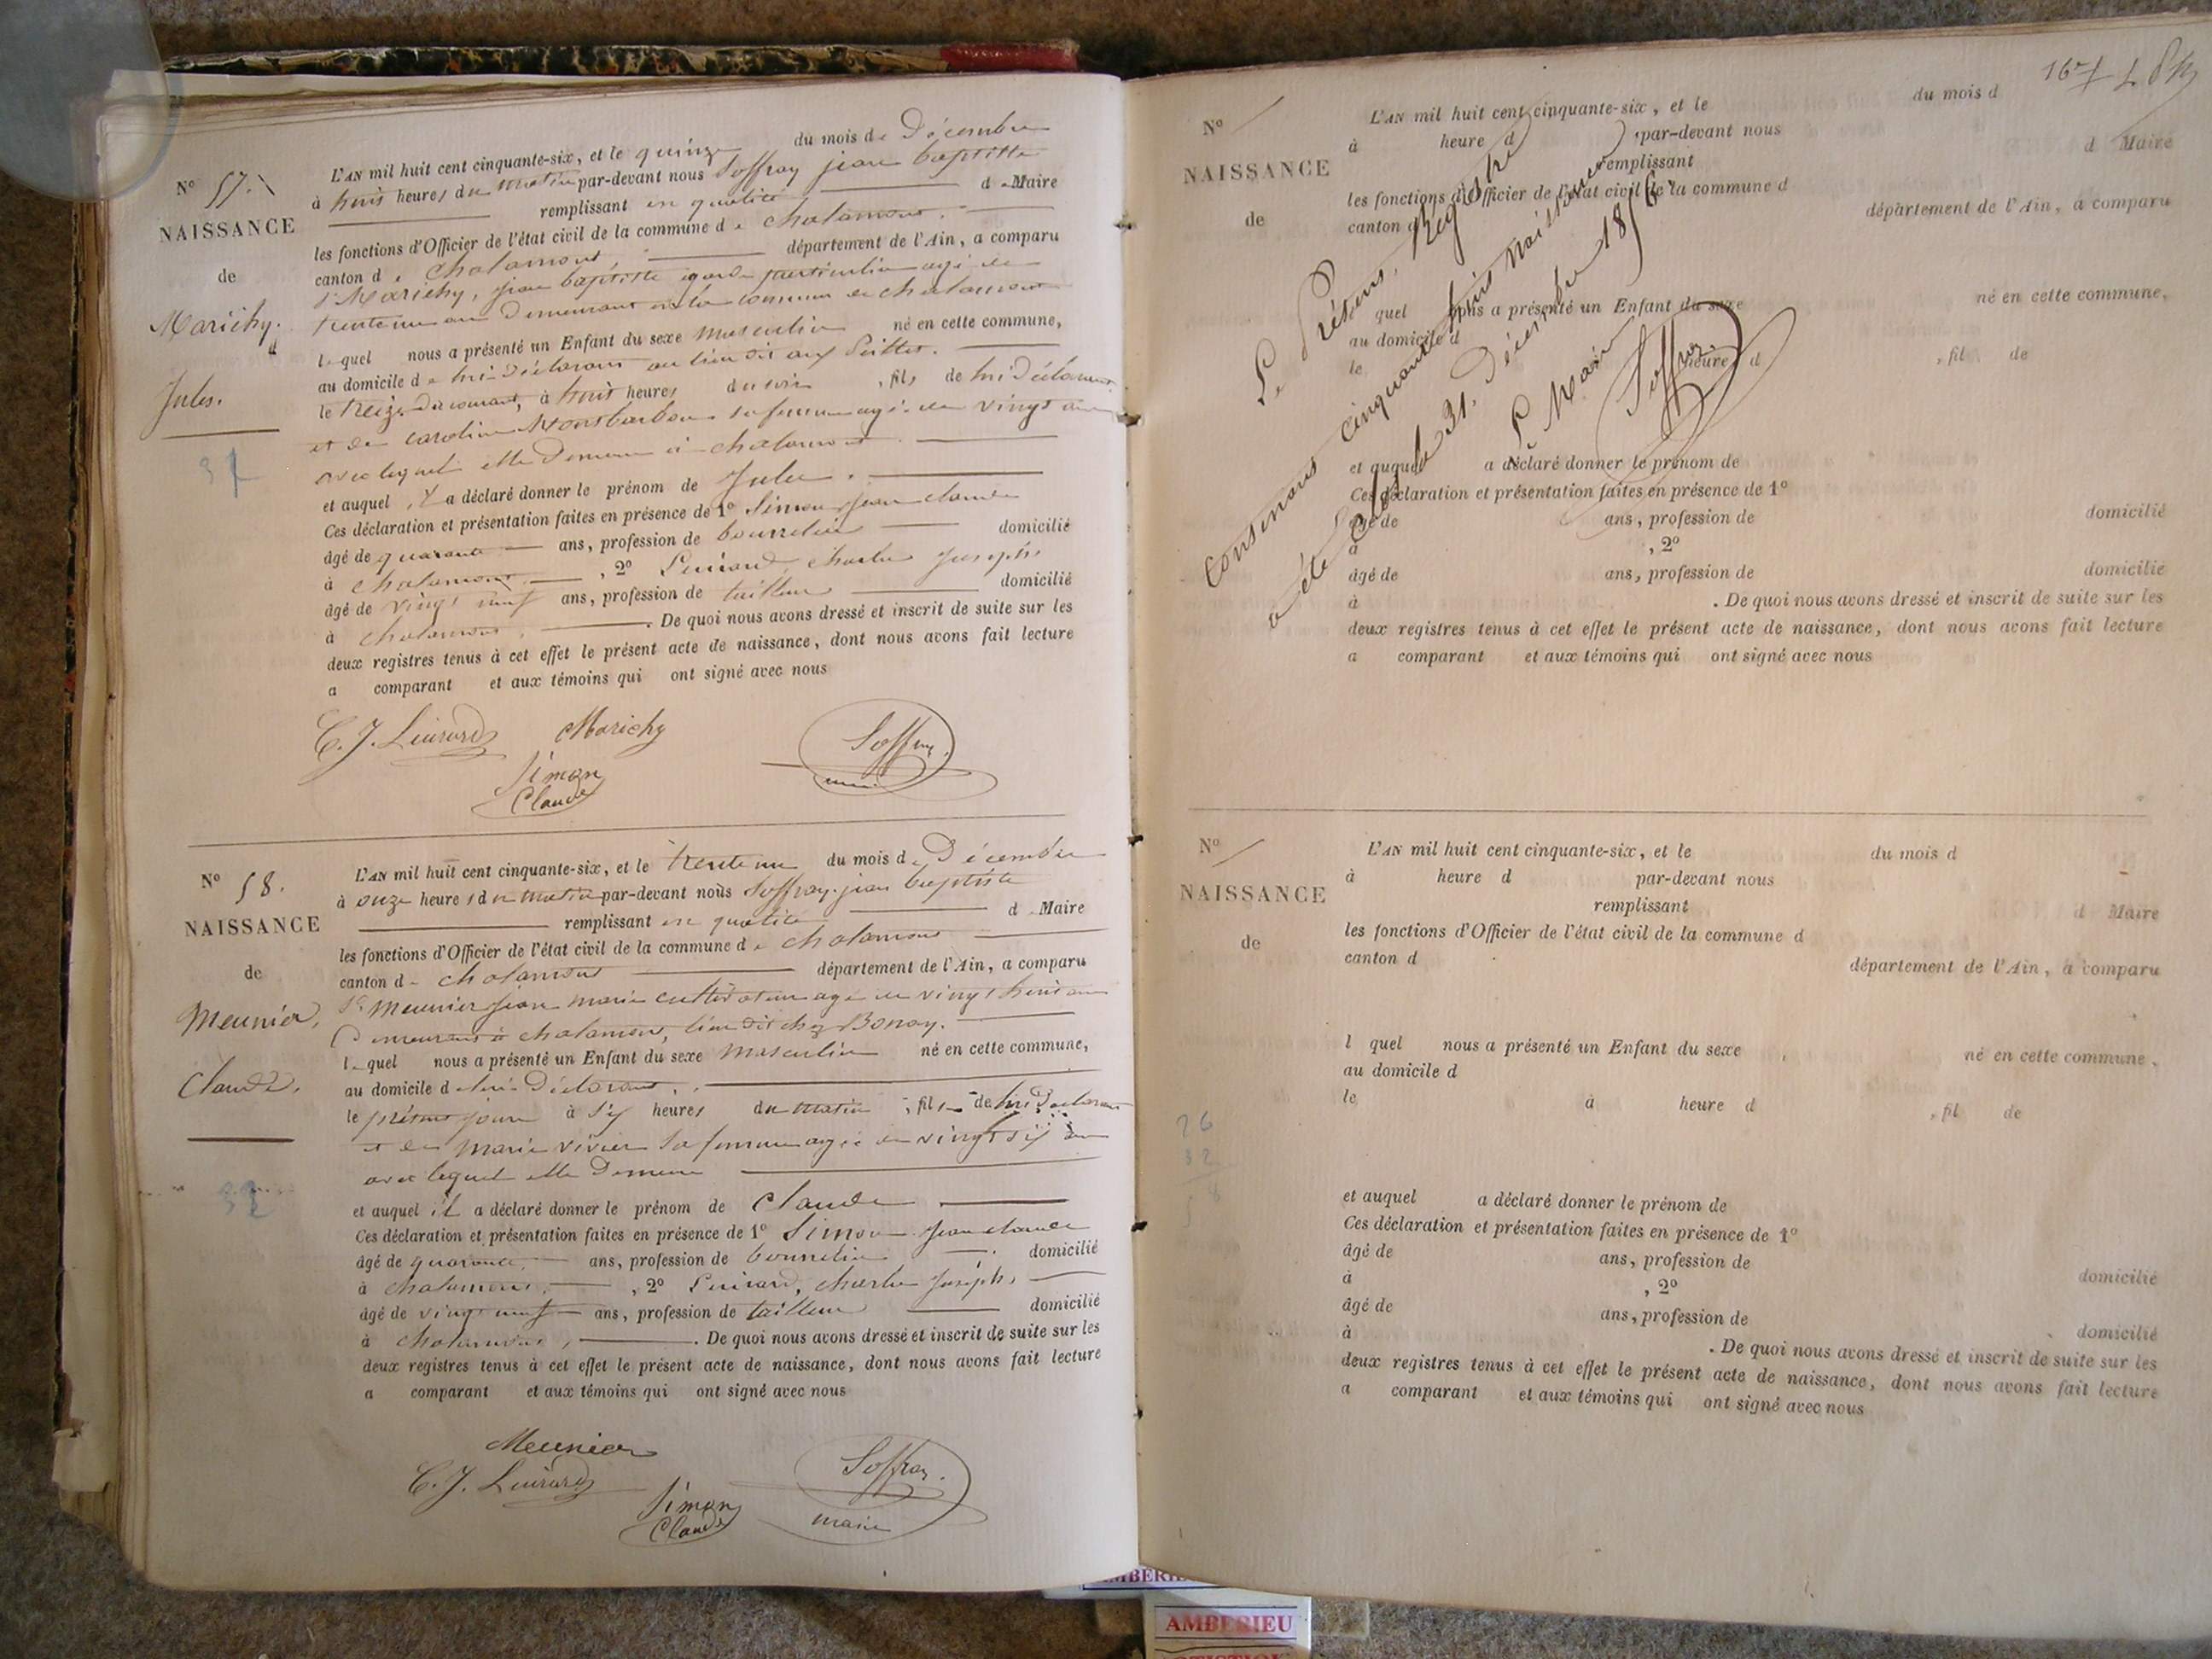 N° 57.
NAISSANCE
de
Marichy.
Jules.
L'AN mil huit cent cinquante-six, et le quinze du mois de Décembre
à huit heures du matin par-devant nous Soffray jean baptiste
remplissant en qualité de Maire
les fonctions d'Officier de l'état civil de la commune de chalamont.
canton de Chalamont, département de l'Ain, a comparu
Sr Marichy, jean baptiste garde particulier agé de
trente un ans demeurant en la commune de chalamont
lequel nous a présenté un Enfant du sexe masculin né en cette commune,
au domicile de lui déclarant au lieu dit aux
le treize du courant, à huit heures du soir, fils de lui déclarant
et de caroline Montbarbon sa femme agée de vingt ans
avec lequel elle demeure à chalamont
et auquel il a déclaré donner le prénom de Jules.
Ces déclaration et présentation faites en présence de 1° Simon Jean claude
âgé de quarante ans, profession de bourrelier domicilié
à chalamont, 2° charles Joseph
âgé de vingt neuf ans, profession de tailleur domicilié
à chalamont, . De quoi nous avons dressé et inscrit de suite sur les
deux registres tenus à cet effet le présent acte de naissance, dont nous avons fait lecture
a comparant et aux témoins qui ont signé avec nous
C. J. Marichy Soffray
Simon maire
Claude
N° 58.
NAISSANCE
de
Meunier,
Claude,
L'AN mil huit cent cinquante-six, et le trente un du mois de Décembre
à onze heures du matin par-devant nous Soffray jean baptiste
remplissant en qualité de Maire
les fonctions d'Officier de l'état civil de la commune de chalamont
canton de chalamont département de l'Ain, a comparu
Sr Meunier Jean marie cultivateur agé de vingt huit ans
Demeurant à chalamont, lieu dit chez Bonay.
lequel nous a présenté un Enfant du sexe masculin né en cette commune,
au domicile de lui déclarant,
le présent jour à six heures du matin, fils de lui Déclarant
et de marie vivier sa femme agée de vingt six ans
avec lequel elle Demeure
et auquel il a déclaré donner le prénom de Claude
Ces déclaration et présentation faites en présence de 1° Simon Jean claude
âgé de quarante, ans, profession de bourrelier domicilié
à chalamont, 2° charles Joseph
âgé de vingt neuf ans, profession de tailleur domicilié
à chalamont, . De quoi nous avons dressé et inscrit de suite sur les
deux registres tenus à cet effet le présent acte de naissance, dont nous avons fait lecture
a comparant et aux témoins qui ont signé avec nous
Meunier
C. J. Soffray
Simon maire
Claude
N°
NAISSANCE
de
L'AN mil huit cent cinquante-six, et le du mois d
à heure d par-devant nous
remplissant d Maire
les fonctions d'Officier de l'état civil de la commune d
canton d département de l'Ain, a comparu
quel nous a présenté un Enfant du sexe né en cette commune,
au domicile d
le heure d , fil de
et auquel a déclaré donner le prénom de
Ces déclaration et présentation faites en présence de 1°
âgé de ans, profession de domicilié
à , 2°
âgé de ans, profession de domicilié
à . De quoi nous avons dressé et inscrit de suite sur les
deux registres tenus à cet effet le présent acte de naissance, dont nous avons fait lecture
a comparant et aux témoins qui ont signé avec nous
Le Présent Régistre
Contenant cinquante huit naissances
a été clos le 31. Décembre 1856.
Le Maire
Soffray
N°
NAISSANCE
de
L'AN mil huit cent cinquante-six, et le du mois d
à heure d par-devant nous
remplissant d Maire
les fonctions d'Officier de l'état civil de la commune d
canton d département de l'Ain, a comparu
l quel nous a présenté un Enfant du sexe né en cette commune,
au domicile d
le à heure d , fil de
26
32
58
et auquel a déclaré donner le prénom de
Ces déclaration et présentation faites en présence de 1°
âgé de ans, profession de
à , 2° domicilié
âgé de ans, profession de
à domicilié
. De quoi nous avons dressé et inscrit de suite sur les
deux registres tenus à cet effet le présent acte de naissance, dont nous avons fait lecture
a comparant et aux témoins qui ont signé avec nous
AMBERIEU